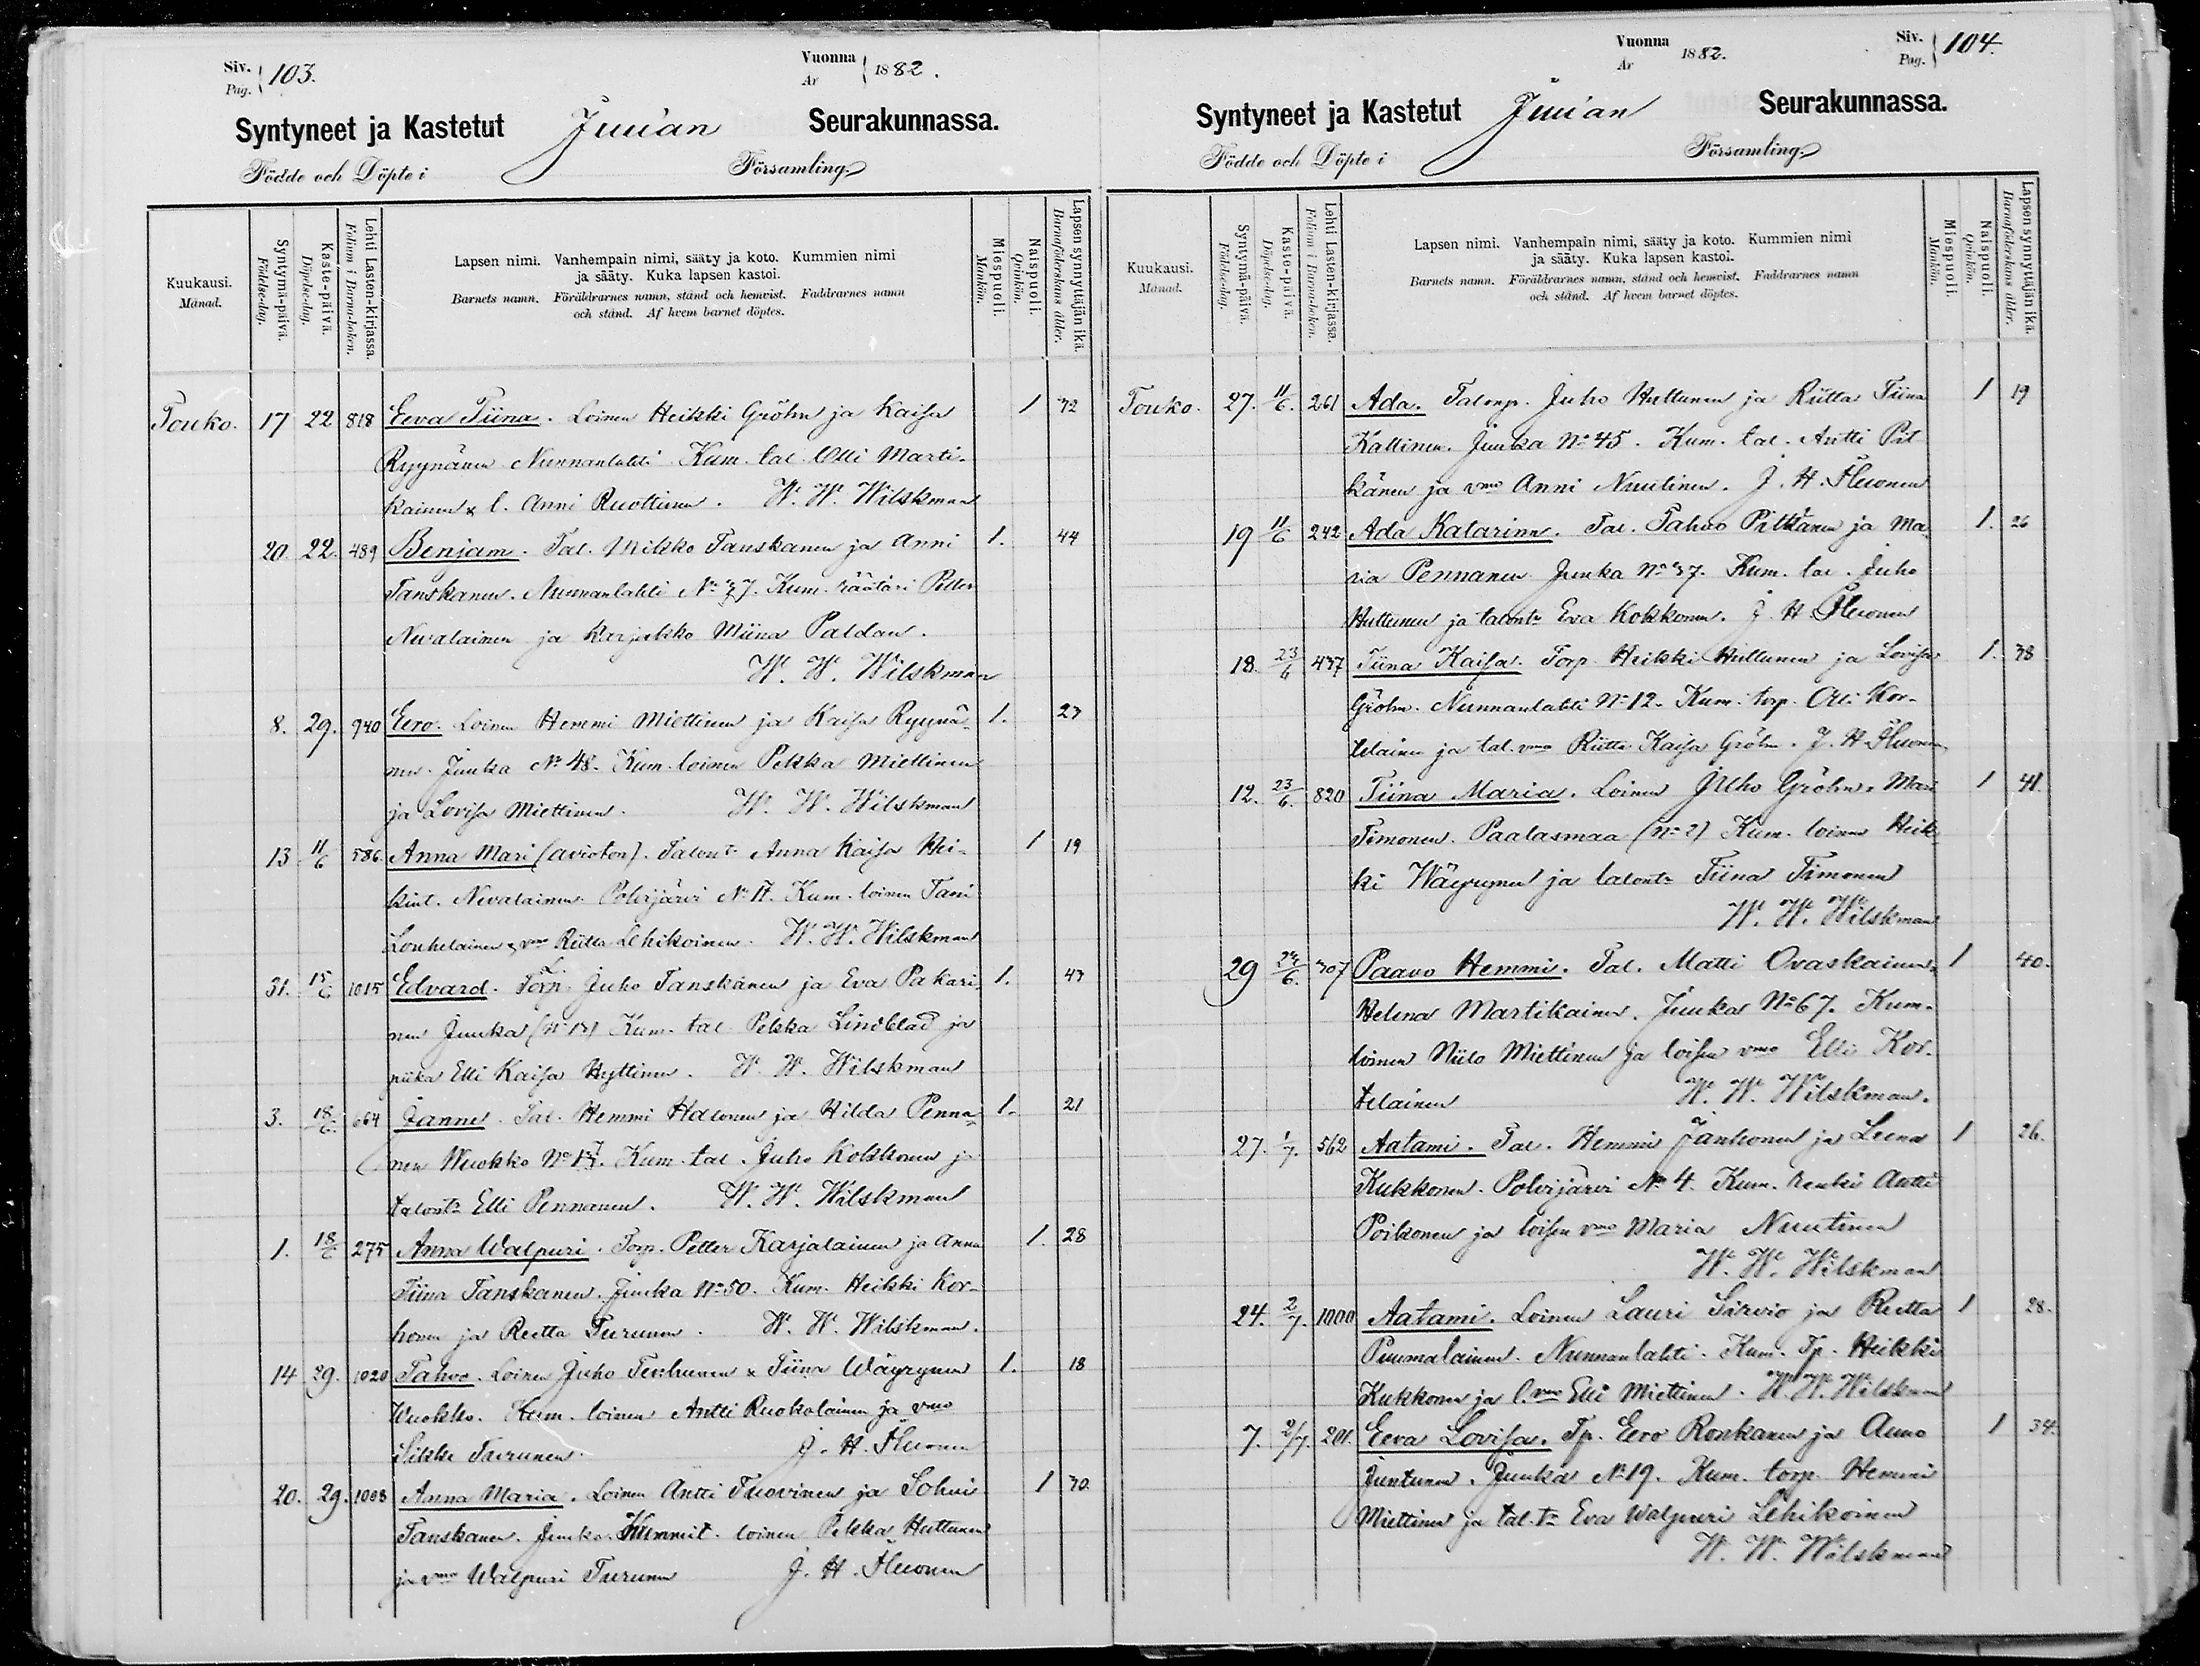 Siv. Pag. 103.
Vuonna År 1882.
Syntyneet ja Kastetut Juuan Seurakunnassa.
Födde och Döpte i Församling.
Kuukausi. Månad.
Syntymä-päivä. Födelse-dag.
Kaste-päivä. Döpelse-dag.
Lehti Lasten-kirjassa. Folium i Barna-boken.
Lapsen nimi. Vanhempain nimi, sääty ja koto. Kummien nimi
ja sääty. Kuka lapsen kastoi.
Barnets namn. Föräldrarnes namn, stånd och hemvist. Faddrarnes namn
och stånd. Af hvem barnet döptes.
Miespuoli. Mankön.
Naispuoli. Qvinkön.
Lapsen synnyttäjän ikä. Barnaföderskans ålder.
Touko. 17 22 818 Eeva Tiina. Loinen Heikki Gröhn ja Kaisa 1 32
Ryynänen Nunnanlahti Kum. tal. Olli Marti-
kainen & l. Anni Ruottinen. W. W. Wilskman
20. 22. 489 Benjam. Tal. Mikko Tanskanen ja Anni 1. 44
Tanskanen. Nunnanlahti No 37. Kum. räätäri Petter
Nevalainen ja Karjakko Miina Paldan.
W. W. Wilskman
8. 29. 940 Eero. Loinen Hemmi Miettinen ja Kaisa Ryynä- 1. 23
nen. Juuka No 48. Kum. loinen Pekka Miettinen
ja Lovisa Miettinen. W. W. Wilskman
13 11/6 586. Anna Mari (avioton). Talont. Anna Kaisa Hei- 1 19
kint. Nevalainen. Polvijärvi No 17. Kum. loinen Tani
Louhelainen & vmo Riitta Lehikoinen. W. W. Wilskman
31. 15/6 1015 Edvard. Torp. Juho Tanskanen ja Eva Pakari 1. 43
nen Juuka (No 13) Kum. tal. Pekka Lindblad ja
piika Elli Kaisa Hyttinen. W. W. Wilskman
3. 18/6. 664 Janne. Tal. Hemmi Halonen ja Hilda Penna- 1. 21
nen Wuokko No 13. Kum. tal. Juho Kokkonen ja
talont. Elli Pennanen. W. W. Wilskman
1. 18/6 275 Anna Walpuri. Torp. Petter Karjalainen ja Anna 1. 28
Tiina Tanskanen. Juuka No 50. Kum. Heikki Kor-
honen ja Reetta Turunen. W. W. Wilskman.
14 29. 1020 Tahvo. Loinen Juho Terhunen & Tiina Wäyrynen 1. 18
Wuokko. Kum. loinen Antti Ruokolainen ja vmo
Sikke Turunen. J. H. Fluonen
20. 29. 1008 Anna Maria. Loinen Antti Tuovinen ja Sohvi 1 30.
Tanskanen. Juuka. Kummit. loinen Pekka Huttunen
ja vmo Walpuri Turunen J. H. Fluonen
Vuonna År 1882.
Siv. Pag. 104.
Syntyneet ja Kastetut Juuan Seurakunnassa.
Födde och Döpte i Församling.
Kuukausi. Månad.
Syntymä-päivä. Födelse-dag.
Kaste-päivä. Döpelse-dag.
Lehti Lasten-kirjassa. Folium i Barna-boken.
Lapsen nimi. Vanhempain nimi, sääty ja koto. Kummien nimi
ja sääty. Kuka lapsen kastoi.
Barnets namn. Föräldrarnes namn, stånd och hemvist. Faddrarnes namn
och stånd. Af hvem barnet döptes.
Miespuoli. Mankön.
Naispuoli. Qvinkön.
Lapsen synnyttäjän ikä. Barnaföderskans ålder.
Touko. 27. 11/6. 261 Ada. Talonp. Juho Huttunen ja Riitta Tiina 1 19
Kallinen. Juuka No 45. Kum. tal. Antti Pit
känen ja vmo Anni Nuutinen. J. H. Fluonen
19 11/6 242 Ada Katarina. Tal. Tahvo Pitkänen ja Ma- 1. 26
ria Pennanen Juuka No 37. Kum. tal. Juho
Huttunen ja talont. Eva Kokkonen. J. H. Fluonen
18. 23/6 437 Tiina Kaisa. Torp. Heikki Huttunen ja Lovisa 1. 38
Gröhn. Nunnanlahti No 12. Kum. torp. Olli Kor-
telainen ja tal. vmo Riitta Kaisa Gröhn. J. H. Fluonen
12. 23/6. 820 Tiina Maria. Loinen Juho Gröhn & Mari 1 41.
Timonen. Paalasmaa (No 2) Kum. loinen Heik-
ki Wäyrynen ja talont. Tiina Timonen
W. W. Wilskman
29 24/6. 307 Paavo Hemmi. Tal. Matti Ovaskainen, 1 40.
Helena Martikainen. Juuka No 67. Kum.
loinen Niilo Miettinen ja loisen vmo Elli Kor-
telainen W. W. Wilskman.
27. 1/7. 562 Aatami. Tal. Hemmi Jänkonen ja Leena 1 26.
Kukkonen. Polvijärvi No 4. Kum. renki Antti
Poikonen ja loisen vmo Maria Nuutinen
W. W. Wilskman
24. 2/7. 1000 Aatami. Loinen Lauri Sirviö ja Reetta 1 28.
Puumalainen. Nunnanlahti. Kum. Tp. Heikki
Kukkonen ja l. vmo Elli Miettinen. W. W. Wilskman
7. 2/7. 201. Eeva Lovisa. Tp. Eero Ronkanen ja Anna 1 34.
Juntunen. Juuka No 19. Kum. torp. Hemmi
Miettinen ja tal. tr Eva Walpuri Lehikoinen
W. W. Wilskman